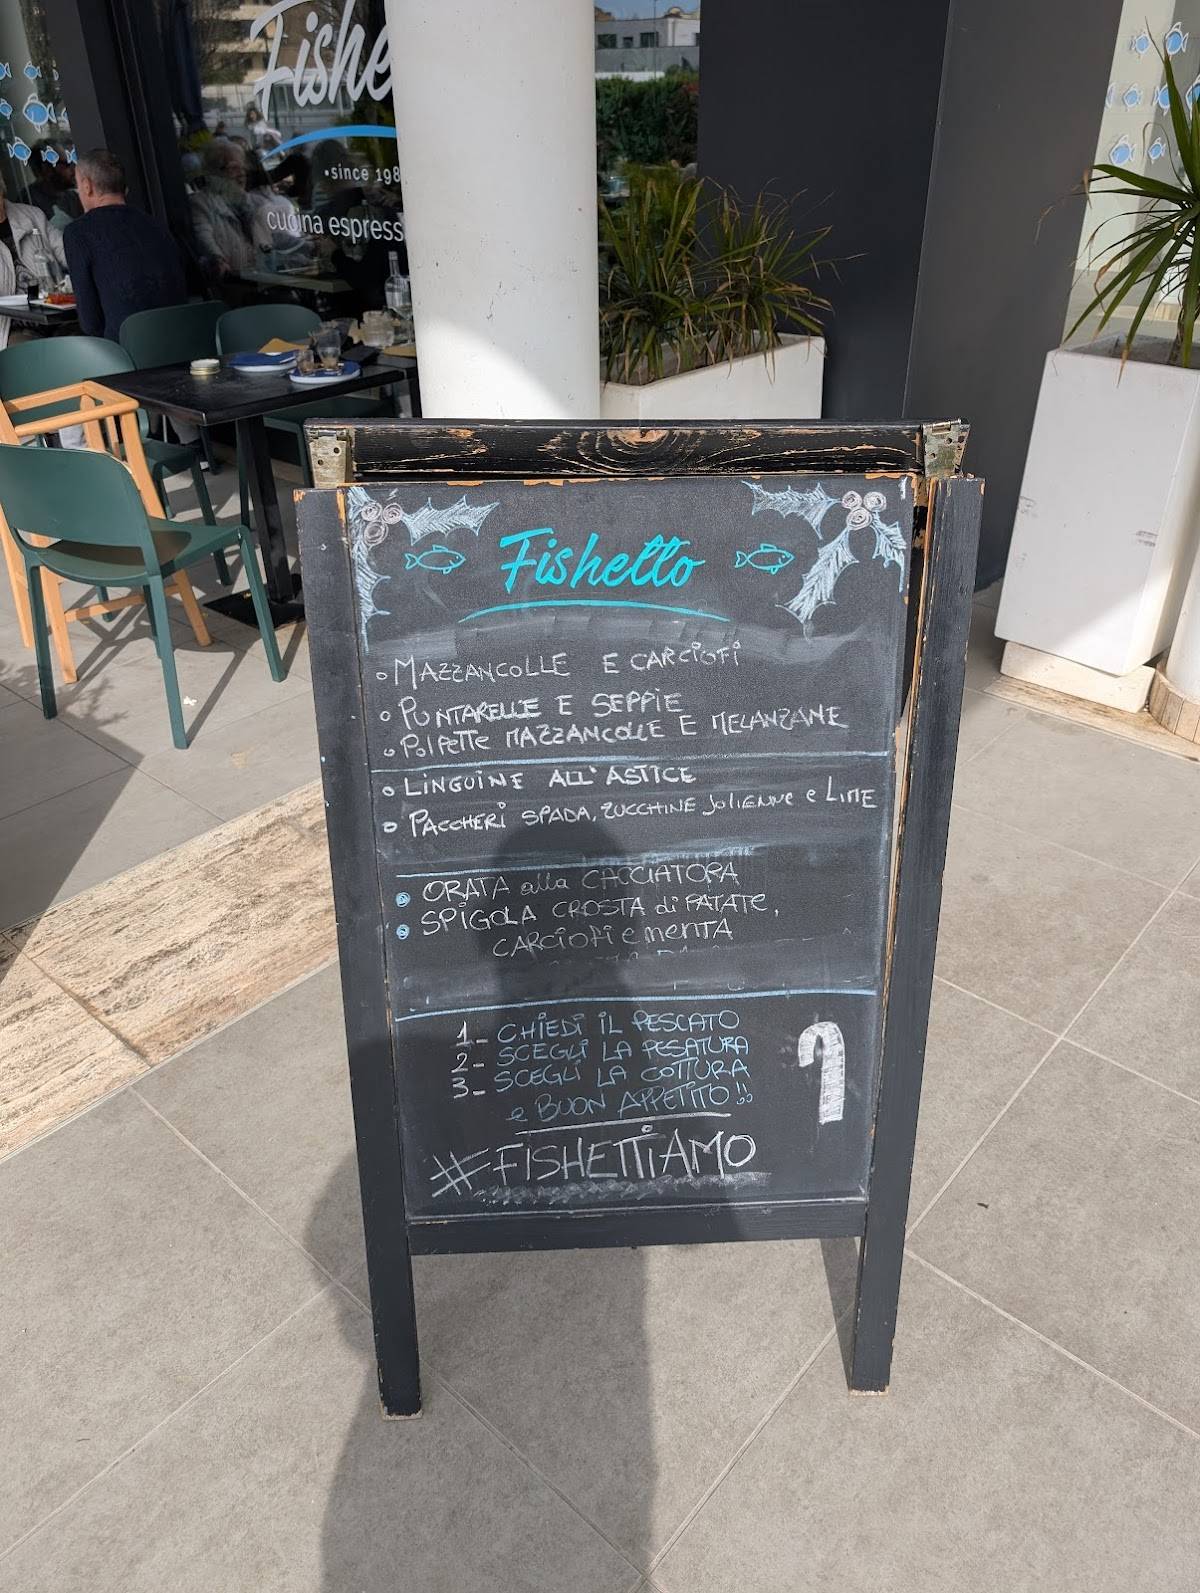 Fishe
•since 198
cucina espress
Fishetto
MAZZANCOLLE E CARCIOFI
PUNTARELLE E SEPPIE
POLPETTE MAZZANCOLLE E MELANZANE
LINGUINE ALL'ASTICE
PACCHERI SPADA, ZUCCHINE JULIENNE e LIME
ORATA alla CACCIATORA
SPIGOLA CROSTA di PATATE,
CARCIOFI e MENTA
1- CHIEDI IL PESCATO
2- SCEGLI LA PESATURA
3- SCEGLI LA COTTURA
e BUON APPETITO!!
#FISHETTIAMO